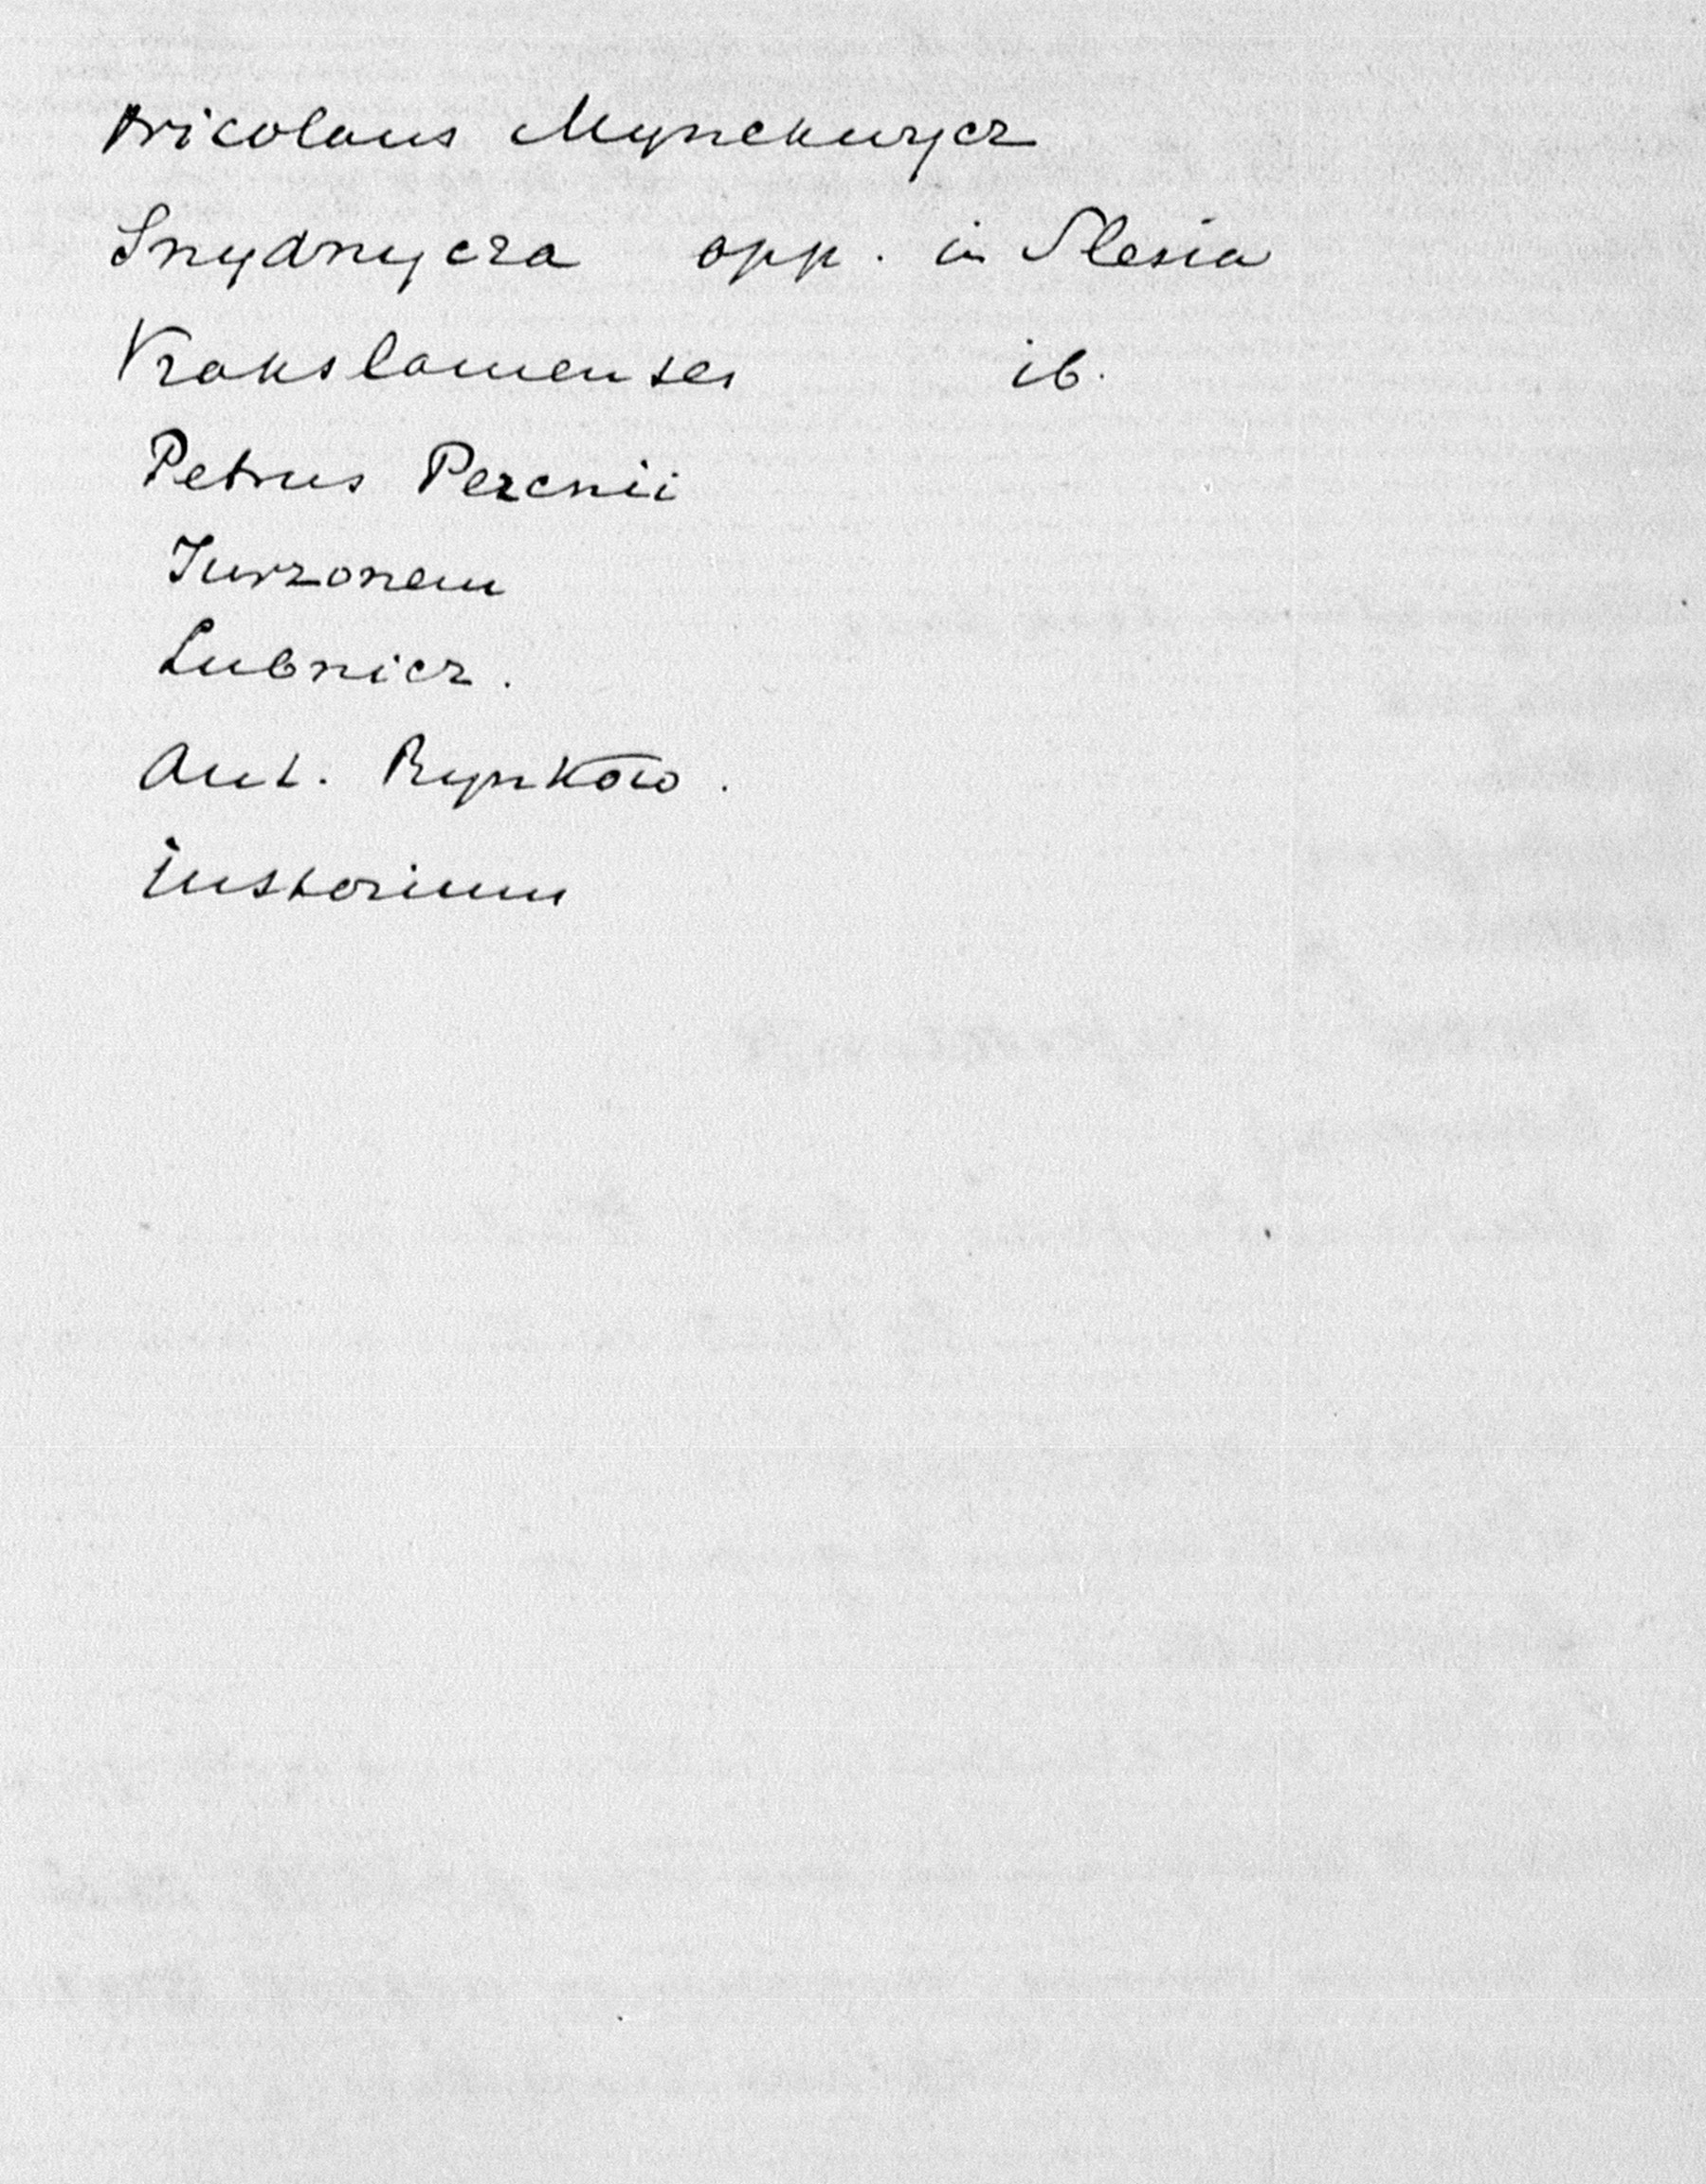 Nicolaus Mynckwycz
Snydnycza opp. in Slesia
Vrakslawienses ib.
Petrus Perchii
Turzonem
Lubnicz.
Ant. Rynkow.
inskorium